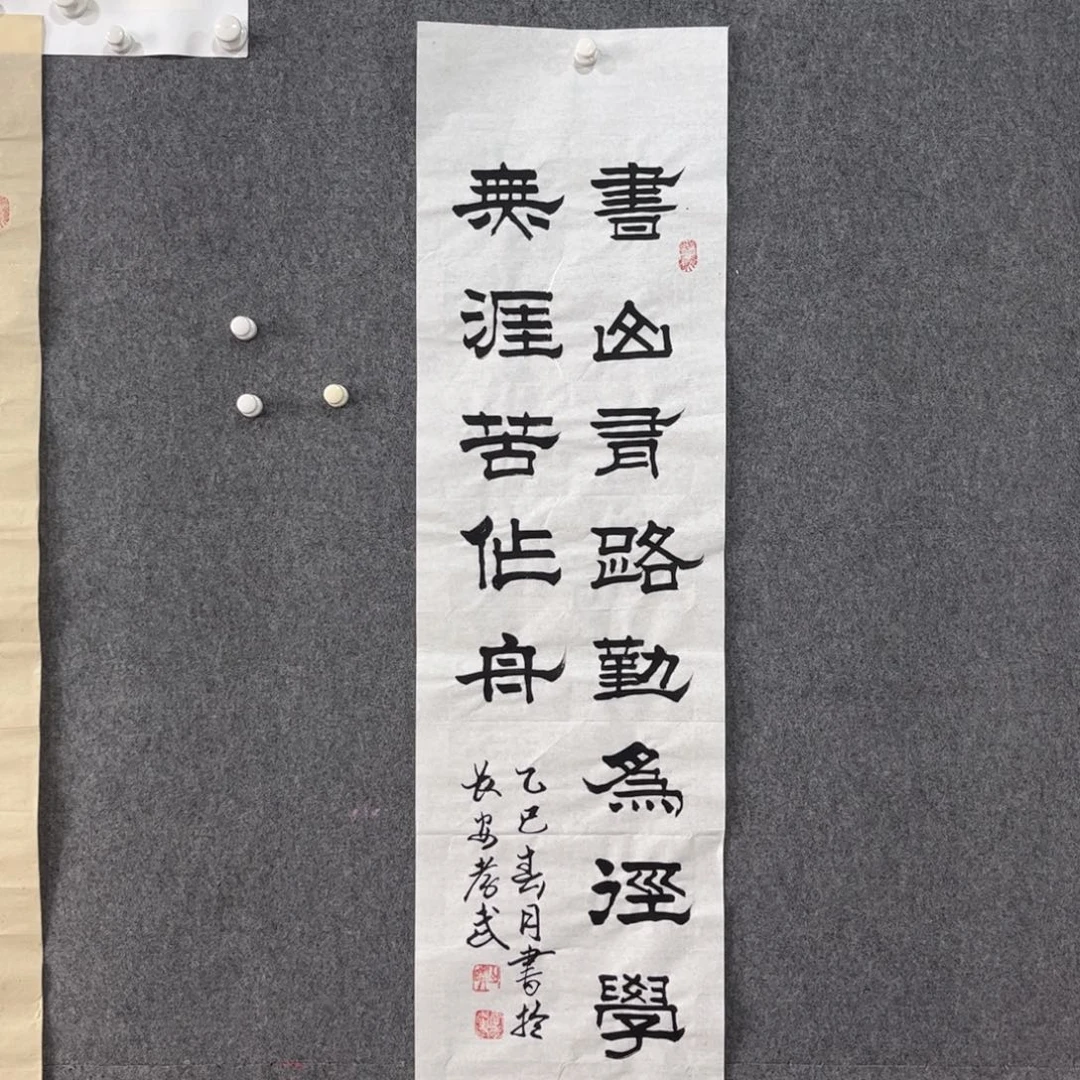 書山有路勤為徑學
無涯苦作舟
乙巳春月書於
長安孝武